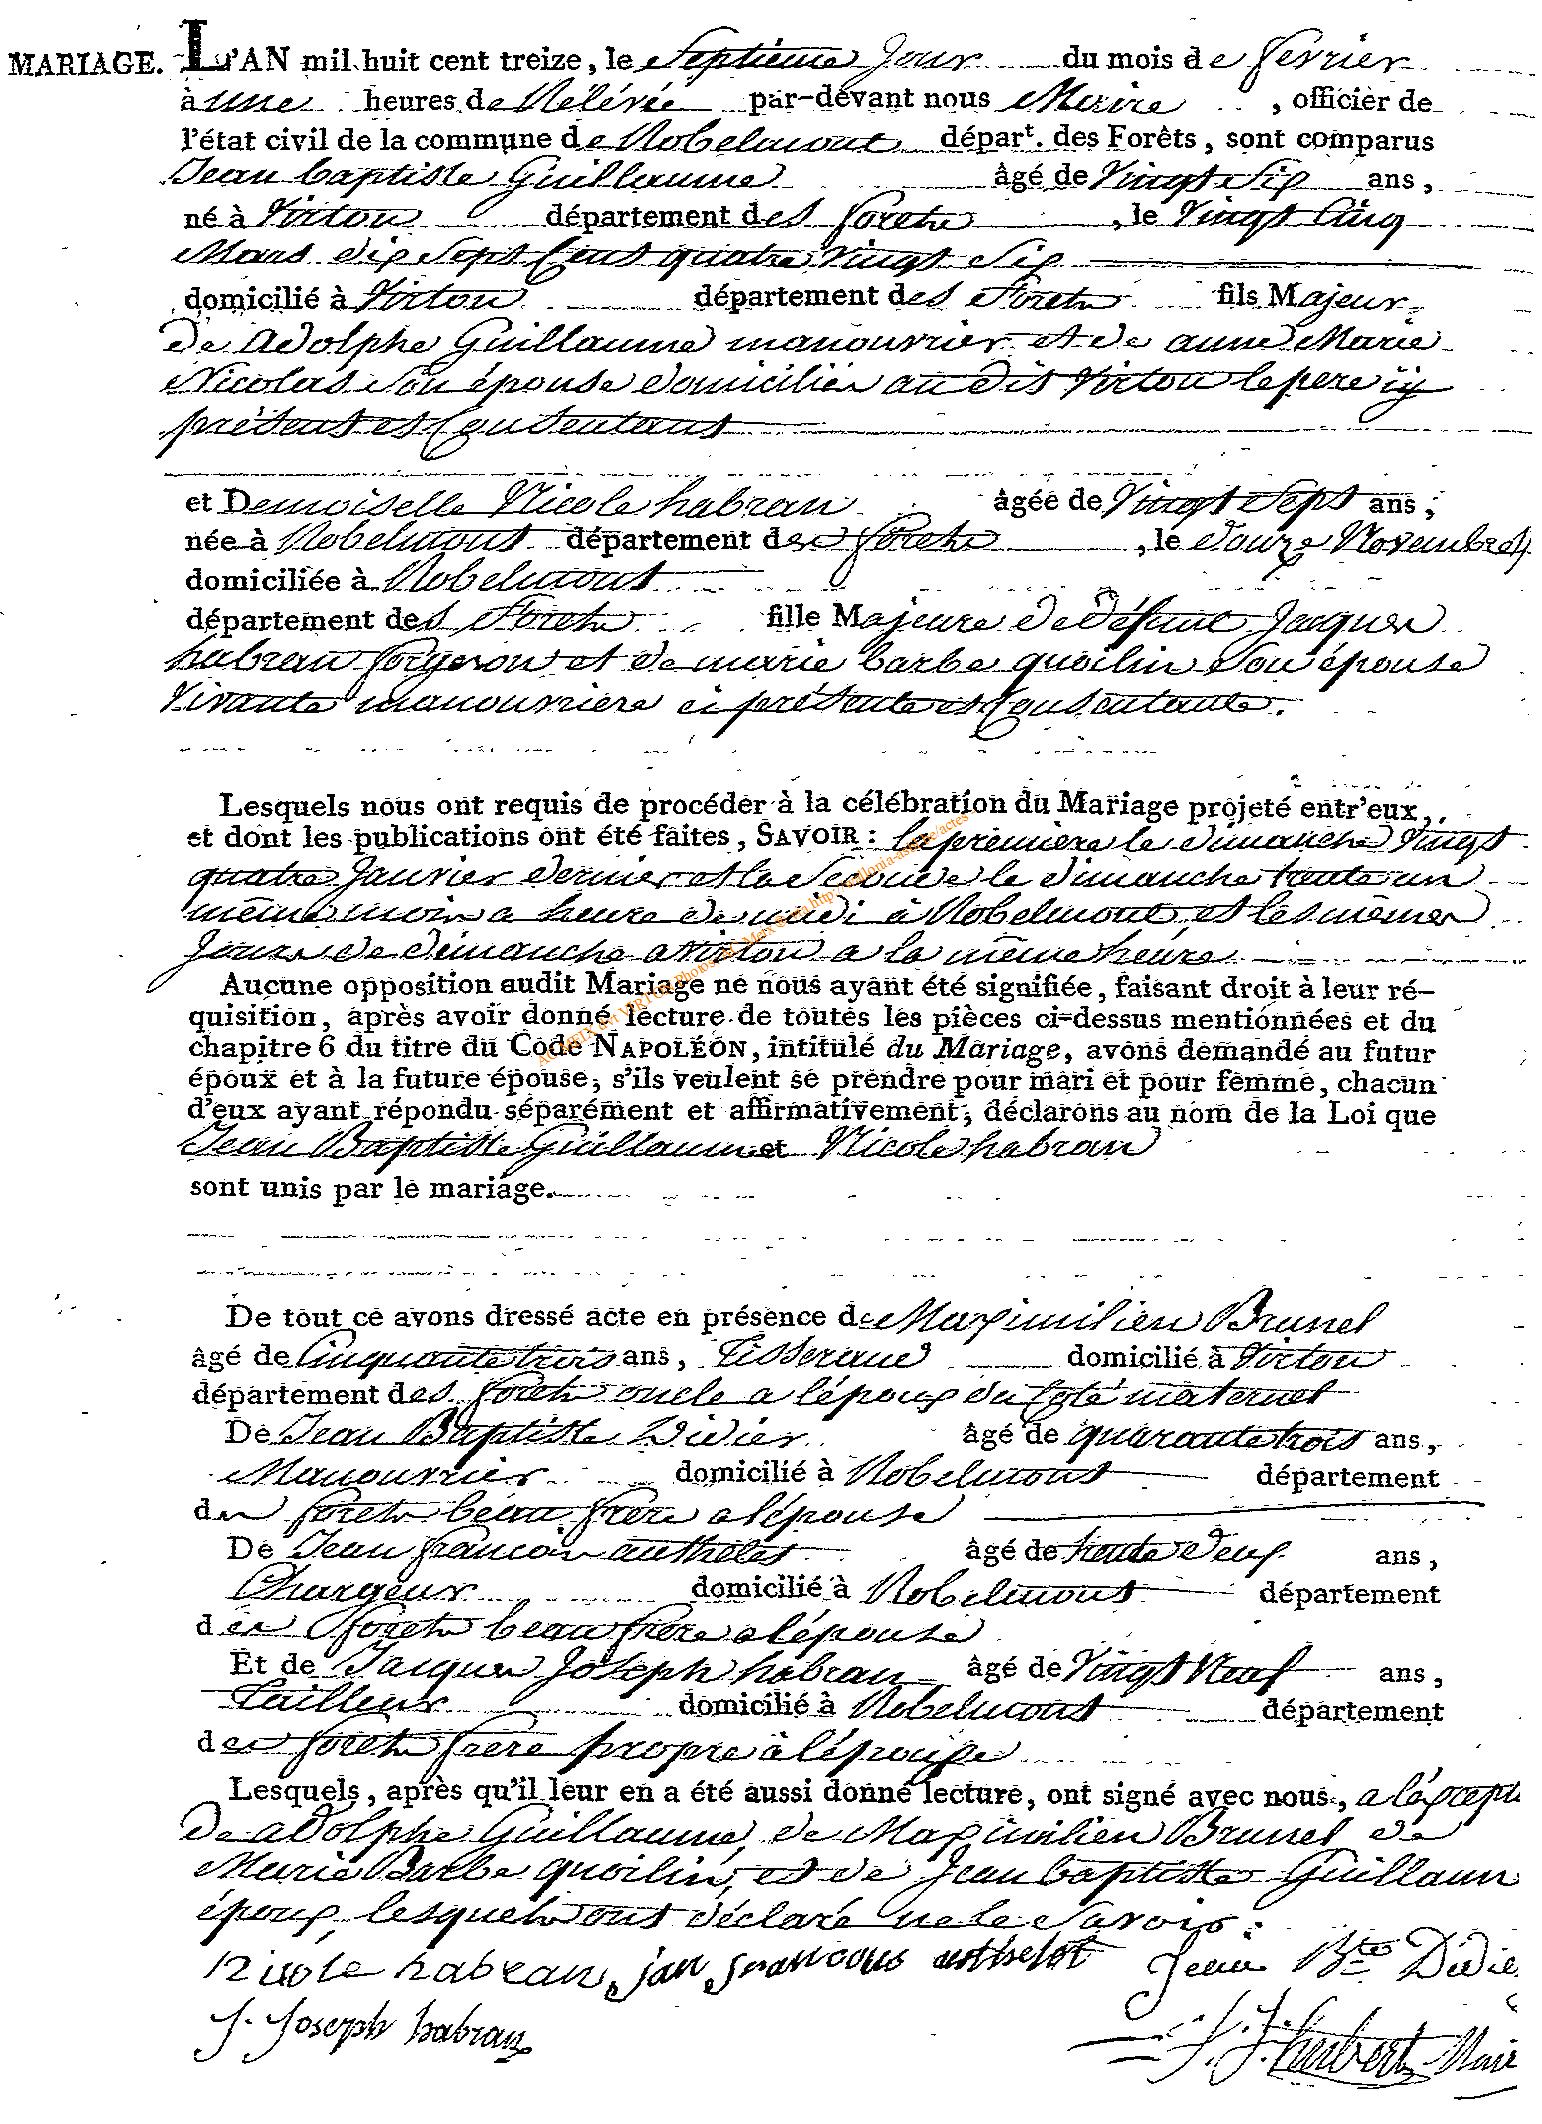 MARIAGE. L'AN mil huit cent treize, le Septieme Jour du mois de fevrier
à une heures de Relévée par-devant nous Maire , officier de
l'état civil de la commune de Robelmont départ. des Forêts, sont comparus
Jean baptiste Guillaume âgé de Vingt Six ans,
né à Virton département des forets , le Vingt Cinq
Mars dix Sept Cent quatre Vingt Six
domicilié à Virton département des Forets fils Majeur
de Adolphe Guillaume manouvrier et de anne Marie
Nicolas Son épouse domiciliés au dit Virton le pere icy
présent et Consentant
et Demoiselle Nicole habran âgée de Vingt Sept ans,
née à Robelmont département des forets , le douze Novembre
domiciliée à Robelmont
département des Forets fille Majeure de défunt Jacques
habran forgeron et de marie barbe quoilin Son épouse
Vivante manouvriere ci présente et Consentante.
Lesquels nous ont requis de procéder à la célébration du Mariage projeté entr'eux,
et dont les publications ont été faites, SAVOIR : la premiere le dimanche Vingt
quatre Janvier dernier et la Seconde le dimanche trente un
même mois a heure de midi à Robelmont, et les mêmes
Jours de dimanche a Virton a la même heure
Aucune opposition audit Mariage ne nous ayant été signifiée, faisant droit à leur ré-
quisition, après avoir donné lecture de toutes les pièces ci-dessus mentionnées et du
chapitre 6 du titre du Code NAPOLÉON, intitulé du Mariage, avons demandé au futur
époux et à la future épouse, s'ils veulent se prendre pour mari et pour femme, chacun
d'eux ayant répondu séparément et affirmativement, déclarons au nom de la Loi que
Jean Baptiste Guillaume et Nicole habran
sont unis par le mariage.
De tout ce avons dressé acte en présence de Maximilien Brunel
âgé de Cinquante trois ans, Tisserand domicilié à Virton
département des forets oncle a lépoux du Coté maternel
De Jean Baptiste Didier âgé de quarante trois ans,
Manouvrier domicilié à Robelmont département
des forets beau frere a lépouse
De Jean francois authelet âgé de trente deux ans,
Chargeur domicilié à Robelmont département
des forets beau frere a lépouse
Et de Jacques Joseph habran âgé de Vingt Neuf ans,
Tailleur domicilié à Robelmont département
des forets frere propre à lépouse
Lesquels, après qu'il leur en a été aussi donné lecture, ont signé avec nous, a léxcept
de adolphe Guillaume, de Maximilien Brunel de
Marie Barbe quoilin, et de Jean baptiste Guillaum
époux, lesquels ont déclaré ne le Savoir.
Nicole habran, jan francous authelot Jean Bte Didie
J. Joseph habran
J. J. Herbert Mair